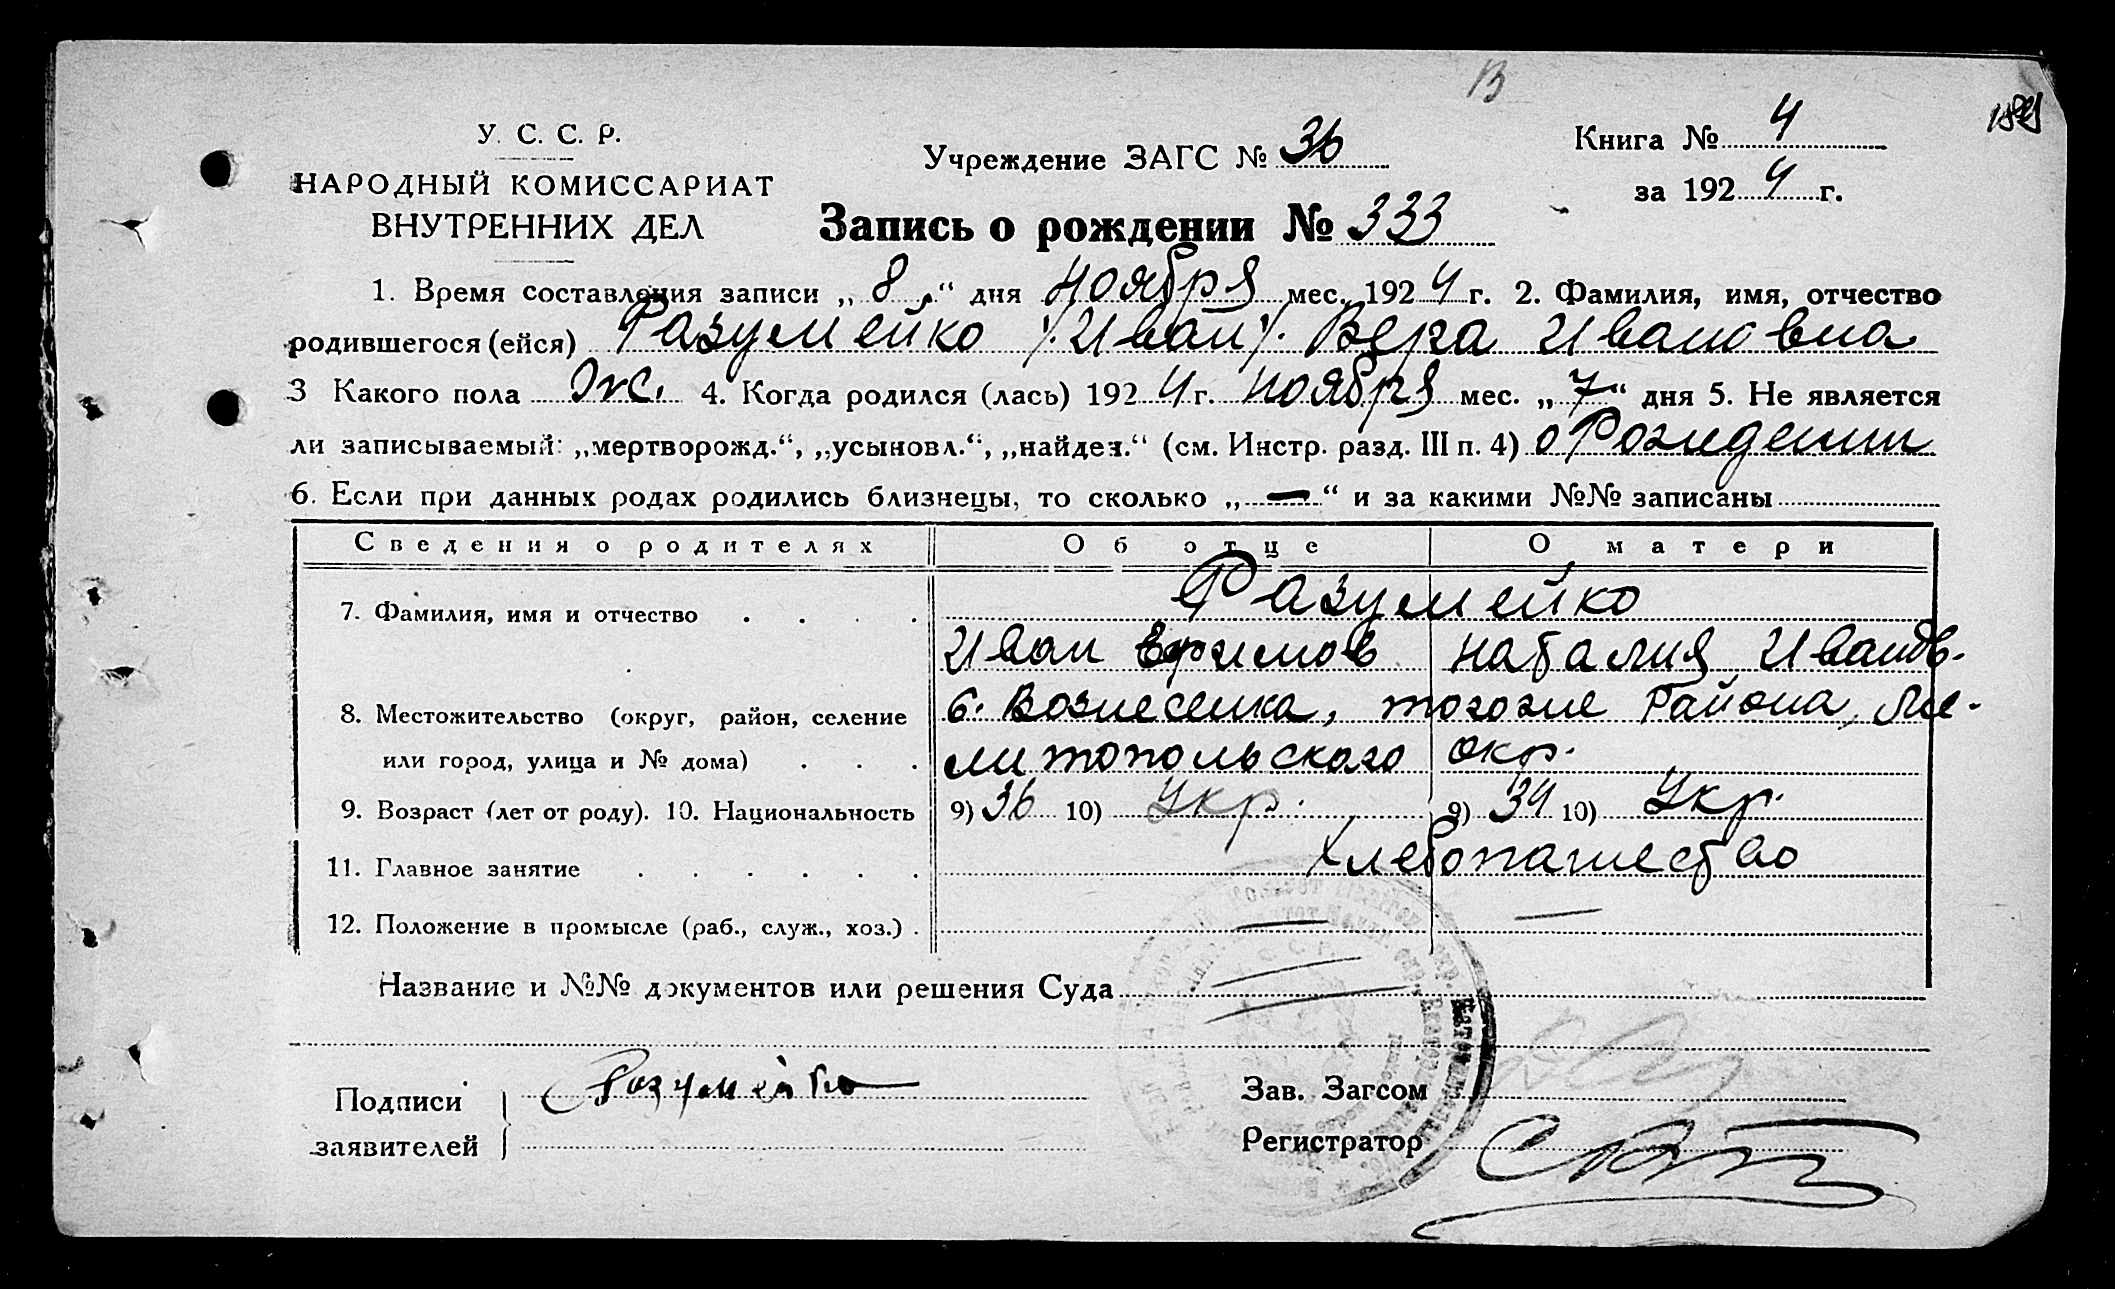 В
1895
У. С. С. Р.
НАРОДНЫЙ КОМИССАРИАТ
ВНУТРЕННИХ ДЕЛ
Учреждение ЗАГС № 36
Книга № 4
за 1924 г.
Запись о рождении № 333
1. Время составления записи „8“ дня ноября мес. 1924 г. 2. Фамилия, имя, отчество
родившегося (ейся) Разумейко /.Иван/. Вера Ивановна
3 Какого пола Ж. 4. Когда родился (лась) 1924 г. ноября мес. „7“ дня 5. Не является
ли записываемый: „мертворожд.“, „усыновл.“, „найден.“ (см. Инстр. разд. III п. 4) о Рождении
6. Если при данных родах родились близнецы, то сколько „—“ и за какими №№ записаны
Сведения о родителях Об отце О матери
7. Фамилия, имя и отчество Разумейко
Иван Ефимов Наталия Иванов.
8. Местожительство (округ, район, селение с. Вознесенка, тогоже Района, Ме-
или город, улица и № дома) литопольского окр.
9. Возраст (лет от роду). 10. Национальность 9) 36 10) Укр. 9) 34 10) Укр.
11. Главное занятие Хлебопашество
12. Положение в промысле (раб., служ., хоз.) — —
Название и №№ документов или решения Суда
Подписи Разумейко
заявителей
Зав. Загсом
Регистратор